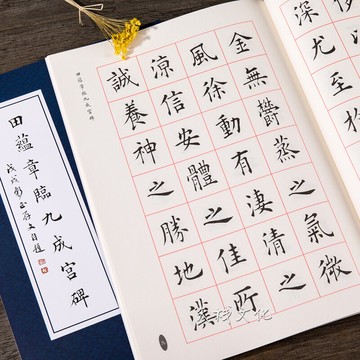 深尤至
金無鬱蒸之氣微
風徐動有淒清之
涼信安體之佳所
誠養神之勝地漢
田蘊章臨九成宮碑
田蘊章臨九成宮碑
文化